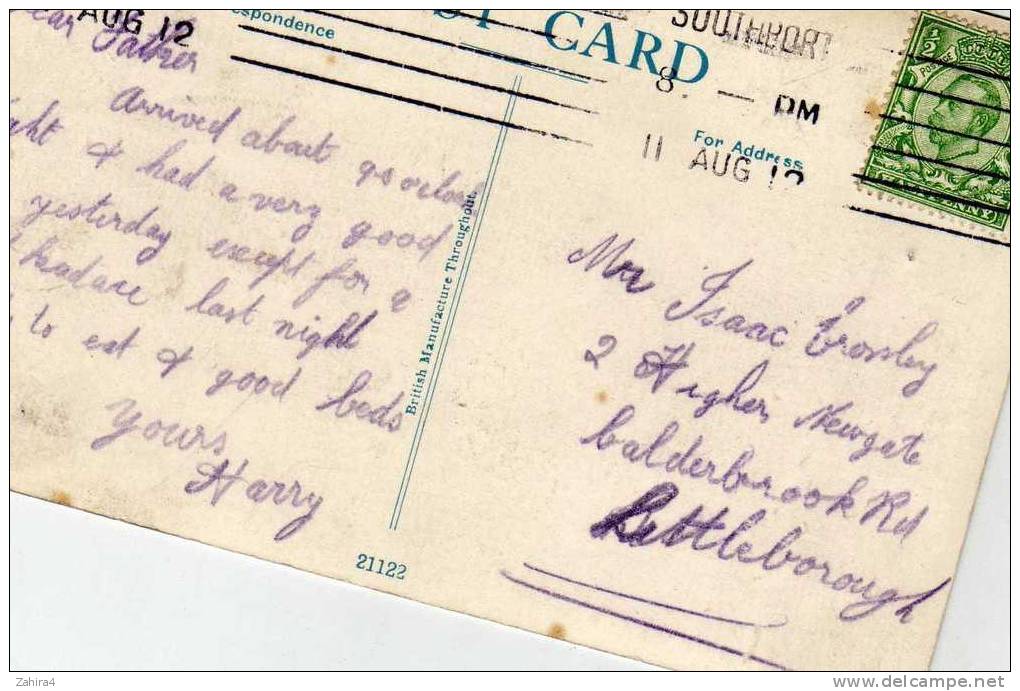 AUG 12
POST CARD
SOUTHPORT
8. — PM
11 AUG 12
respondence
For Address
HALFPENNY
Dear Father
Arrived about 9 oclock
& had a very good
yesterday except for a
headace last night
to eat & good beds
Yours
Harry
British Manufacture Throughout
Mr Isaac Crossley
2 Higher Newgate
Calderbrook Rd
Littleborough
21122
Zahira4
www.delcampe.net